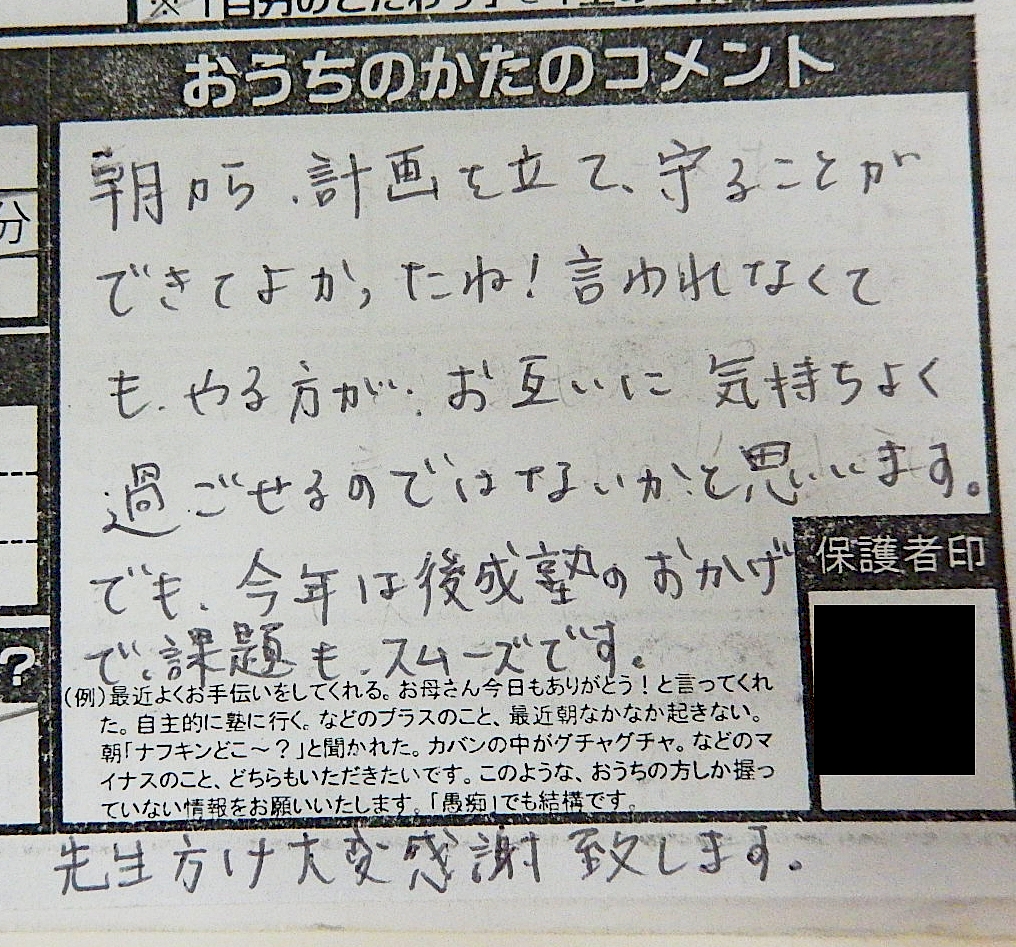 ※「自分のこだわり」
おうちのかたのコメント
朝から、計画を立て、守ることが
できてよかったね!言われなくて
も、やる方が、お互いに気持ちよく
過ごせるのではないかと思いします。
でも、今年は後成塾のおかげ
で、課題も、スムーズです。
分
?
保護者印
(例)最近よくお手伝いをしてくれる。お母さん今日もありがとう!と言ってくれ
た。自主的に塾に行く。などのプラスのこと、最近朝なかなか起きない。
朝「ナフキンどこ~?」と聞かれた。カバンの中がグチャグチャ。などのマ
イナスのこと、どちらもいただきたいです。このような、おうちの方しか握っ
ていない情報をお願いいたします。「愚痴」でも結構です。
先生方け大変感謝致します。